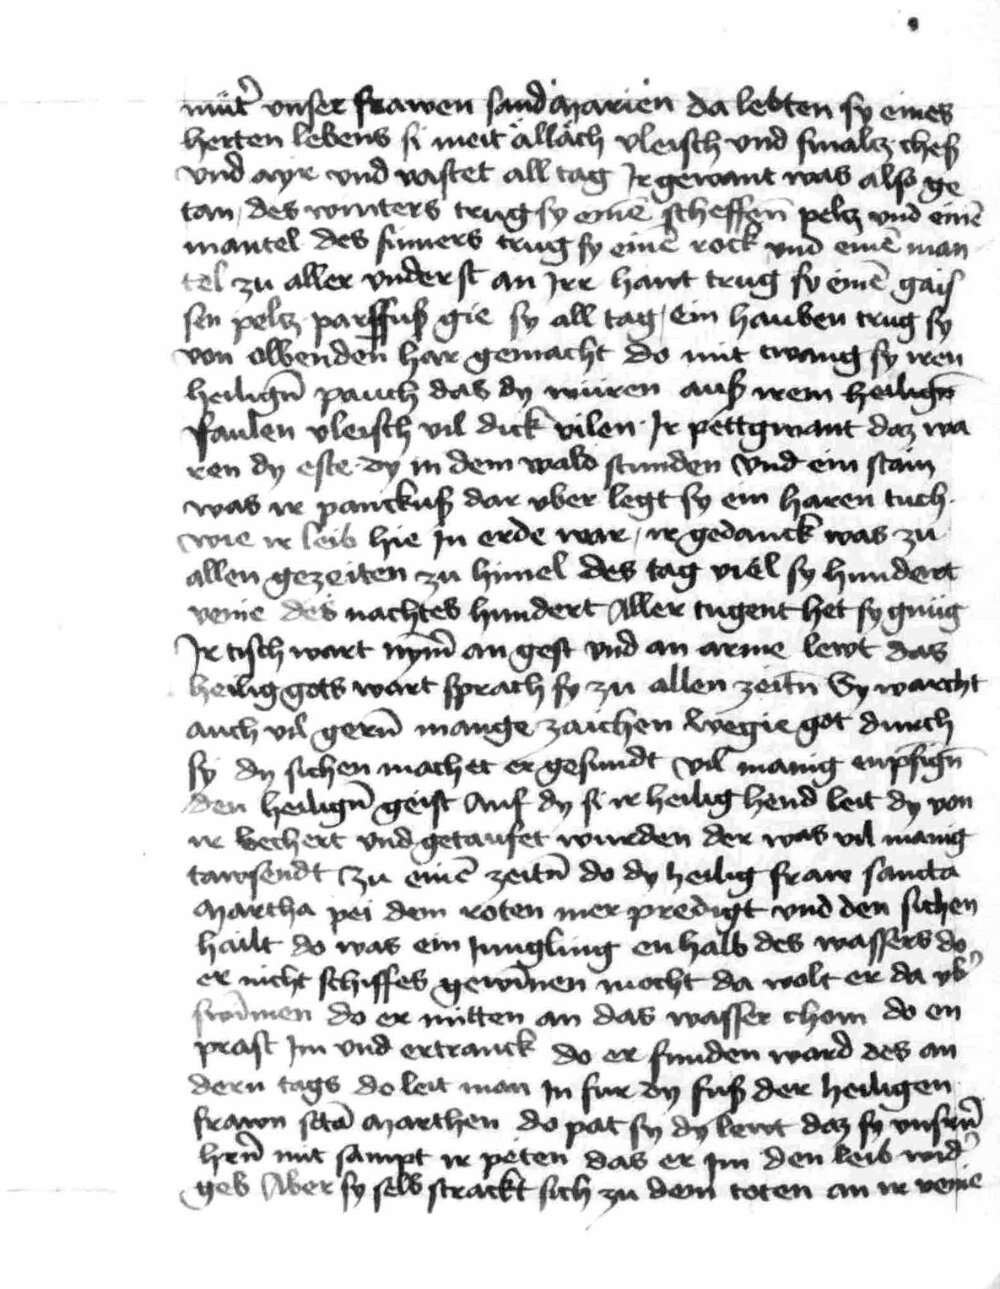 mut͛ vnser frawen sand Marien da lebten sy eines
herten lebens si meit allach vleisch vnd smalcz ches
vnd ayr vnd vastet all tag Ir gewant was also ge
tan des winters trug sy eine̅ scheffen̅ pelcz vnd eine̅
mantel des sumers trug sy eine̅ rock vnd eine̅ man
tel zu aller vnderst an Irr hawt trug sy eine̅ gais
sen pelcz parffuß gie sy all tag ein hauben trug sy
von olbenden̅ har gemacht do mit twang sy iren
heilign̅ pauch das dy wuren auß irem heilign̅
faulen vleisch vil dick vilen Ir pettgwant daz wa
ren dy este dy in dem wald stunden vnd ein stain
was ir panckuß dar vber legt sy ein haren tuch
wie ir leib hie in erde war ir gedanck was zu
allen gezeiten zu himel des tag viel sy hundert
venie des nachtes hundert Aller tugent het sy gnug
Ir tisch wart nym̅ an gest vnd an arme lewt das
heilig gots wart sprach sy zu allen zeitn̅ Sy warcht
auch vil gern̅ mange zaichen begie got durch
sy dy sichen machet er gesundt vil manig enpfign̅
den heilign̅ geist Auf dy si ir heilig hend leit dy von
ir bechert vnd getaufet wurden der was vil manig
tawsendt Zu eine̅ zeitn̅ do dy heilig fraw sancta
Martha pei dem roten mer predigt vnd den sichen
hailt do was ein Jungling enhalb des wassers do
er nicht schiffes gewin̅en mocht da wolt er da vb͛
swim̅en do er mitten an das wasser chom do en
prast Im vnd ertranck do er funden ward des an
dern tags do leit man In fur dy fuß der heiligen
frawn sc̅ta Marthen do pat sy dy lewt daz sy vnsern̅
hrn̅ mit sampt ir peten das er Im den leib wid͛
geb Aber sy selb strackt sich zu dem toten an ir venie